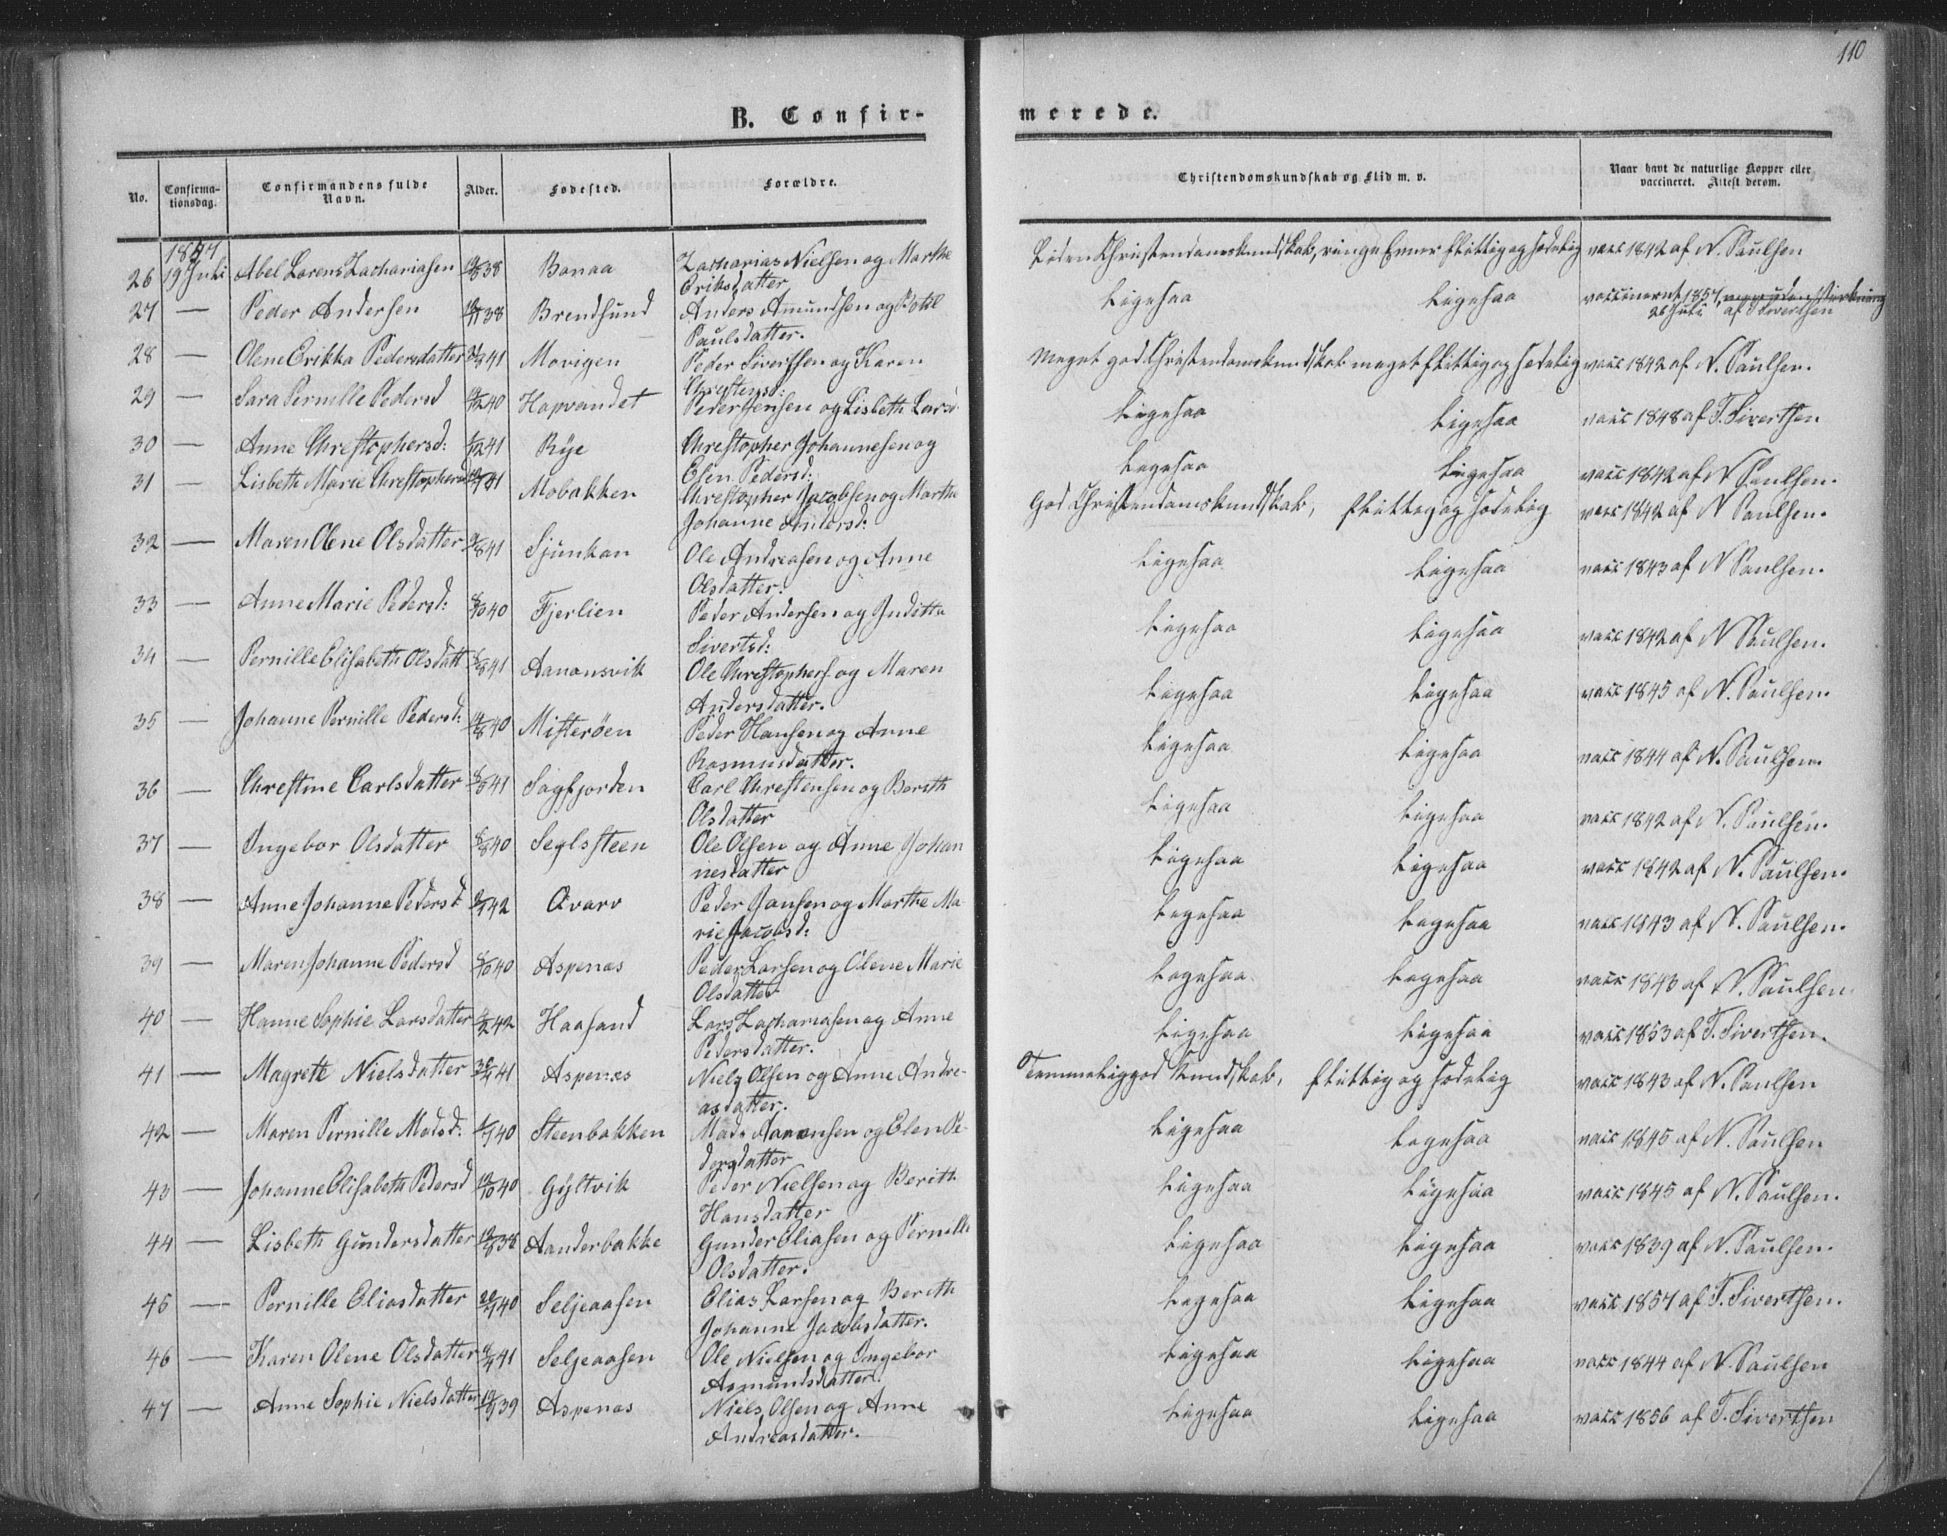 110
B. Confir-
merede.
No.
Confirma-
tionsdag.
Confirmandens fulde
Navn.
Alder.
Fødested.
Forældre.
Christendomskundskab og Flid m. v.
Naar havt de naturlige Kopper eller
vaccineret. Attest derom.
1857
26 19 Juli Abel Lorens Zachariasen 38 Bonaa Zacharias Nielsen og Marthe
Eriksdatter
Liden Christendomskundskab, ringe Evner flittig og sædelig vacc 1842 af N. Paulsen
27 — Peder Andersen 38 Brendsund Anders Amundsen og Botel
Paulsdatter.
Ligesaa Ligesaa vaccineret 1857, men uden Virkning
26 Juli af T. Siverthsen
28 — Olene Erikka Pedersdatter 41 Movigen Peder Siverssen og Karen
Christensd:
Meget god Christendomskundskab meget flittig og sædelig vacc 1842 af N. Paulsen.
29 — Sara Pernille Pedersd 40 Hopvandet Peder Jensen og Lisbeth Larsd
Ligesaa Ligesaa vacc 1848 af T. Siverthsen
30 — Anne Christophersd: 41 Rÿe Christopher Johannesen og
Elen Pedersd:
Ligesaa Ligesaa vacc 1842 af N Paulsen.
31 — Lisbeth Marie Christophersd 41 Mobakken Christopher Jacobsen og Marthe
Johanne Andersd:
God Christendomskundskab, flittig og sædelig vacc 1842 af N Paulsen.
32 — Maren Olene Olsdatter 41 Sjünkan Ole Andreasen og Anne
Olsdatter.
Ligesaa Ligesaa vacc 1843 af N Paulsen.
33 — Anne Marie Pedersd: 40 Fjerlien Peder Andersen og Juditta
Sivertsd:
Ligesaa Ligesaa vacc 1842 af N Paulsen.
34 — Pernille Elisabeth Olsdatt 41 Aanonsvik Ole Christophers og Maren
Andersdatter.
Ligesaa Ligesaa vacc 1845 af N. Paulsen.
35 — Johanne Pernille Pedersd: 40 Misterøen Peder Hansen og Anne
Rasmusdatter.
Ligesaa Ligesaa vacc 1844 af N. Paulsen.
36 — Christine Carlsdatter 41 Sagfjorden Carl Christensen og Berith
Olsdatter
Ligesaa Ligesaa vacc 1842 af N. Paulsen.
37 — Ingebor Olsdatter 40 Seglsteen Ole Olsen og Anne Johan
nesdatter
Ligesaa Ligesaa vacc 1842 af N. Paulsen.
38 — Anne Johanne Pedersd 42 Qvarv Peder Jansen og Marthe Ma-
rie Jacobsd:
Ligesaa Ligesaa vacc 1843 af N. Paulsen.
39 — Maren Johanne Pedersd 40 Aspenæs Peder Larsen og Olene Marie
Olsdatter
Ligesaa Ligesaa vacc 1843 af N. Paulsen
40 — Hanne Sophie Larsdatter 42 Haasand Lars Zachariasen og Anne
Pedersdatter.
Ligesaa Ligesaa vacc 1853 af T. Siverthsen.
41 — Magrethe Nielsdatter 41 Aspenæs Niels Olsen og Anne Andre-
asdatter.
Temmelig god Kundskab, flittig og sædelig vacc 1843 af N. Paulsen
42 — Maren Pernille Madsd. 40 Steenbakken Mads Aanensen og Elen Pe-
dersdatter
Ligesaa Ligesaa vacc 1845 af N. Paulsen
43 — Johanne Elisabeth Pedersd 40 Gÿltvik Peder Nielsen og Berith
Hansdatter
Ligesaa Ligesaa vacc 1845 af N. Paulsen.
44 — Lisbeth Gundersdatter 38 Aanderbakke Gunder Eliasen og Pernille
Olsdatter.
Ligesaa Ligesaa vacc 1839 af N. Paulsen.
45 — Pernille Eliasdatter 40 Seljeaasen Elias Larsen og Berith
Johanne Jacobsdatter.
Ligesaa Ligesaa vacc 1857 af T. Siverthsen.
46 — Karen Olene Olsdatter 41 Seljeaasen Ole Nielsen og Ingebor
Asmundsdatter
Ligesaa Ligesaa vacc 1844 af N. Paulsen
47 — Anne Sophie Nielsdatter 39 Aspenæs Niels Olsen og Anne
Andreasdatter.
Ligesaa Ligesaa vacc 1856 af T. Siverthsen